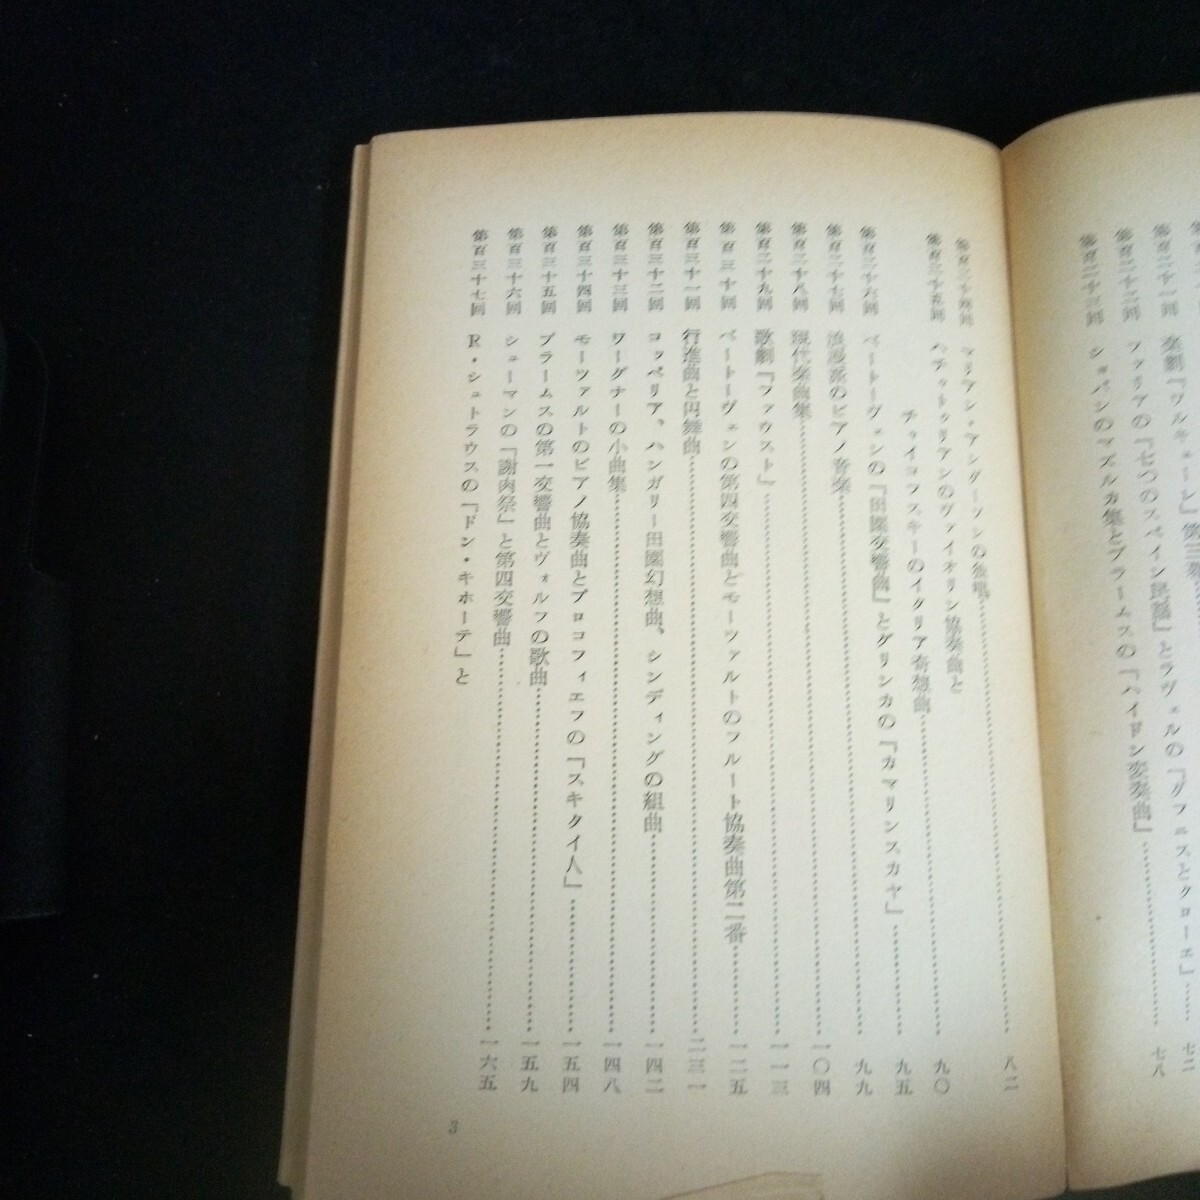 第百二十一回 楽劇『ワルキューレ』第三幕……七二
第百二十二回 ファリアの『七つのスペイン民謡』とラヴェルの『ダフニスとクローエ』……七八
第百二十三回 ショパンのマズルカ集とブラームスの『ハイドン変奏曲』
第百二十四回 マリアン・アンダーソンの独唱……八二
第百二十五回 ハチャトゥリアンのヴァイオリン協奏曲と
チャイコフスキーのイタリア奇想曲……九〇
第百二十六回 ベートーヴェンの『田園交響曲』とグリンカの『カマリンスカヤ』……九五
第百二十七回 浪漫派のピアノ音楽……九九
第百二十八回 現代楽曲集……一〇四
第百二十九回 歌劇『ファウスト』……一一三
第百三十回 ベートーヴェンの第四交響曲とモーツァルトのフルート協奏曲第二番……一二五
第百三十一回 行進曲と円舞曲……一三一
第百三十二回 コッペリア、ハンガリー田園幻想曲、シンディングの組曲……一四二
第百三十三回 ワーグナーの小曲集……一四八
第百三十四回 モーツァルトのピアノ協奏曲とプロコフィエフの『スキタイ人』……一五四
第百三十五回 ブラームスの第一交響曲とヴォルフの歌曲……一五九
第百三十六回 シューマンの『謝肉祭』と第四交響曲……一六五
第百三十七回 R・シュトラウスの『ドン・キホーテ』と
3